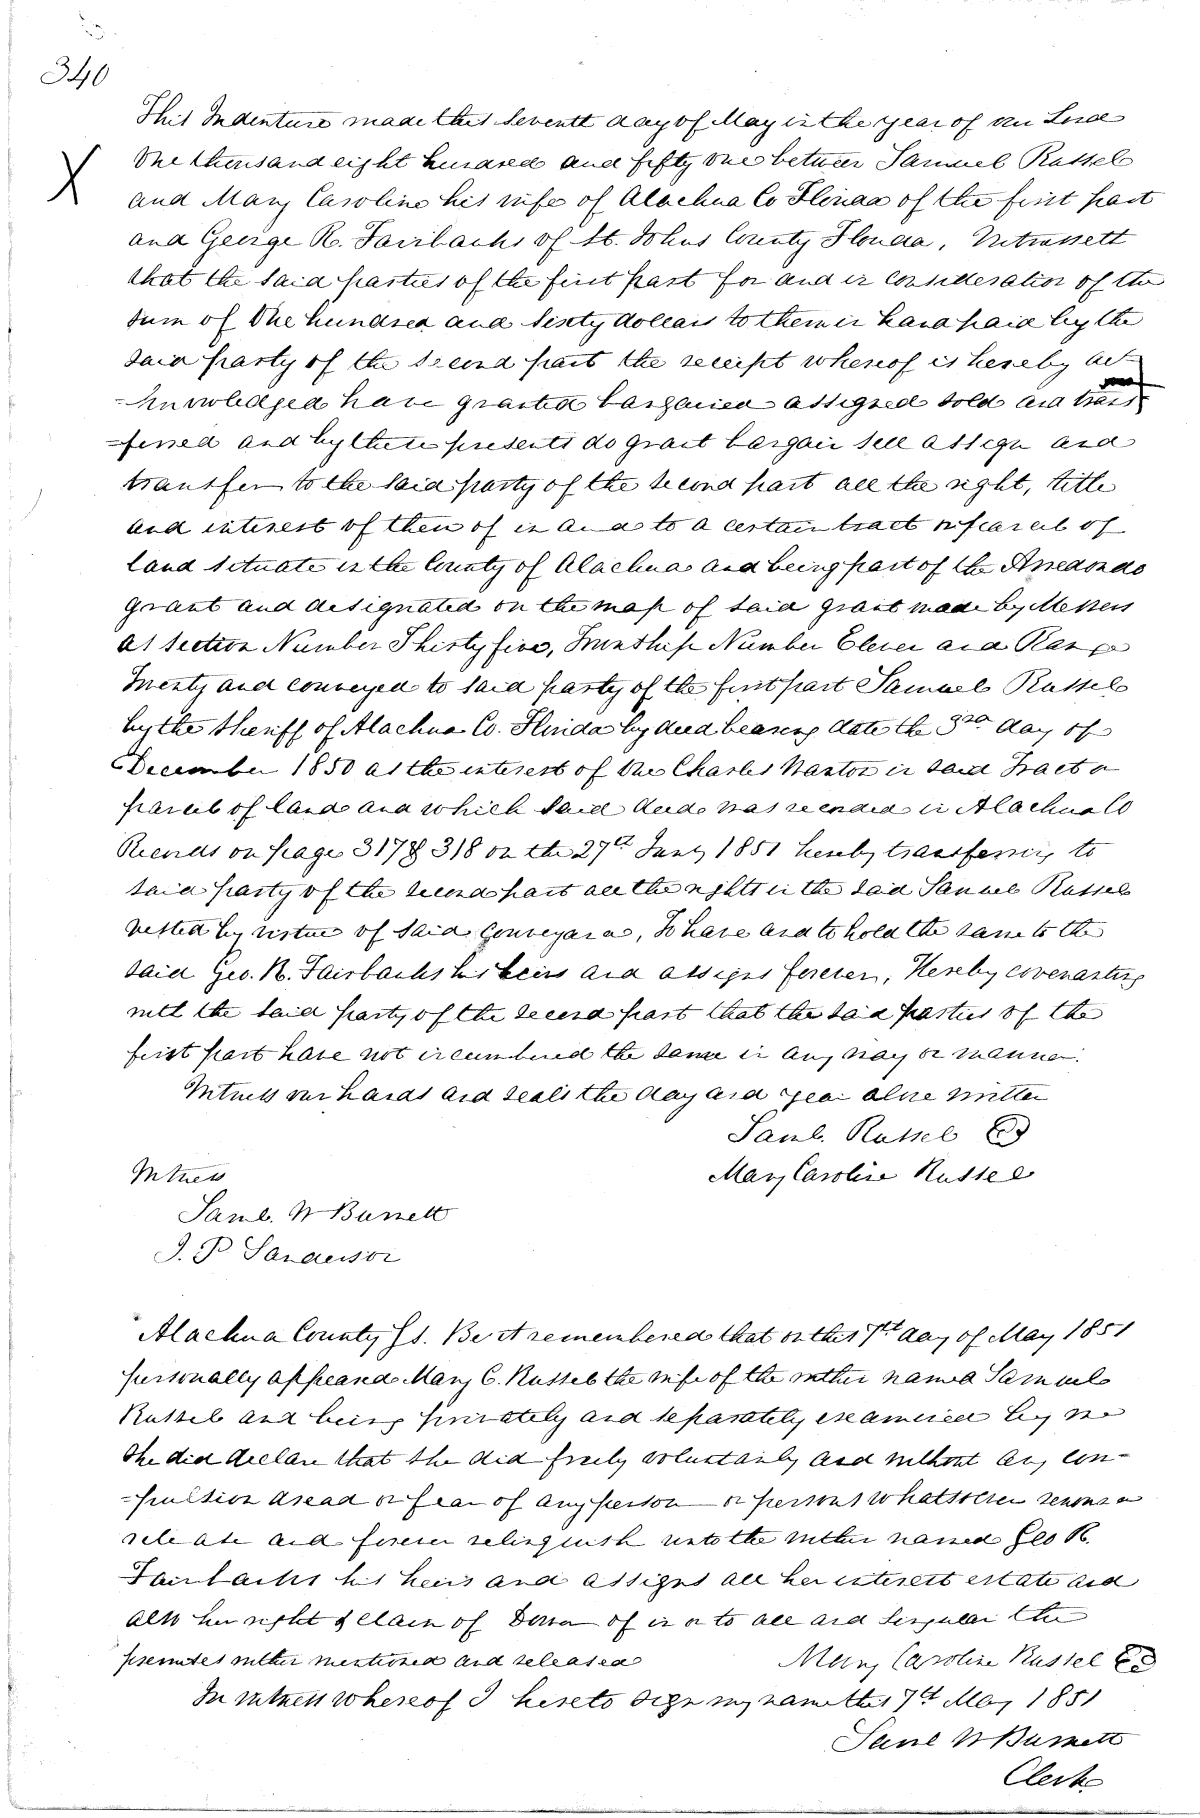 340
This Indenture made this Seventh day of May in the year of our Lord
One thousand eight hundred and fifty one between Samuel Russel
X
and Mary Caroline his wife of Alachua Co Florida of the first part
and George R. Fairbanks of St. Johns County Florida, Witnesseth
that the said parties of the first part for and in consideration of the
sum of One hundred and sixty dollars to them in hand paid by the
said party of the second part the receipt whereof is hereby ac-
-knowledged have granted bargained assigned sold and trans
-ferred and by these presents do grant bargain sell assign and
transfer to the said party of the second part all the right, title
and interest of them of in and to a certain tract or parcel of
land situate in the County of Alachua and being part of the Arredondo
grant and designated on the map of said grant made by Messers
as section Number Thirty five, Township Number Eleven and Range
Twenty and conveyed to said party of the first part Samuel Russel
by the Sheriff of Alachua Co. Florida by deed bearing date the 3rd day of
December 1850 as the interest of One Charles Wanton in said Tract or
parcel of land and which said deed was recorded in Alachua Co
Records on page 317 & 318 on the 27th Jany 1851 hereby transferring to
said party of the second part all the rights in the said Samuel Russel
vested by virtue of said conveyance, To have and to hold the same to the
said Geo. R. Fairbanks his heirs and assigns forever, Hereby covenanting
with the said party of the second part that the said parties of the
first part have not incumbered the same in any way or manner.
Witness our hands and seals the day and year above written
Saml. Russel
Mary Caroline Russel
Witness
Saml. W Burnett
J. P Sanderson
Alachua County Ss. Be it remembered that on this 7th day of May 1851
personally appeared Mary C. Russel the wife of the within named Samuel
Russel and being privately and separately examined by me
She did declare that she did freely voluntarily and without any com-
-pulsion dread or fear of any person or persons whatsoever renounce
release and forever relinquish unto the within named Geo R.
Fairbanks his heirs and assigns all her interest estate and
also her right & claim of Dower of in or to all and singular the
premises within mentioned and released
Mary Caroline Russel
In witness whereof I hereto sign my name this 7th May 1851
Saml W Burnett
Clerk